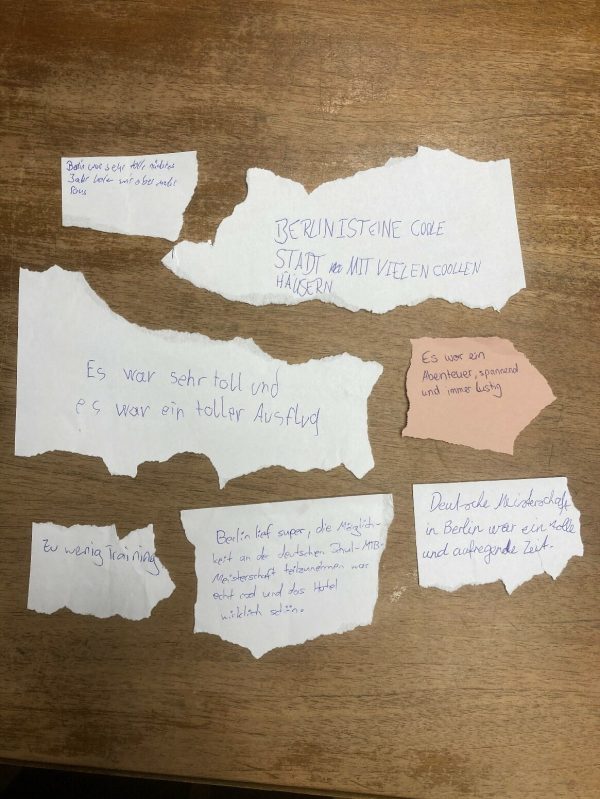 Berlin war sehr toll nächstes
Jahr holen wir aber mehr
raus
BERLIN IST EINE COOLE
STADT MIT VIELEN COOLLEN
HÄUSERN
Es war sehr toll und
es war ein toller Ausflug
Es war ein
Abenteuer, spannend
und immer lustig
Zu wenig Training
Berlin lief super, die Möglich-
keit an der deutschen Schul-MTB-
Meisterschaft teilzunehmen war
echt cool und das Hotel
wirklich schön.
Deutsche Meisterschaft
in Berlin war ein tolle
und aufregende Zeit.